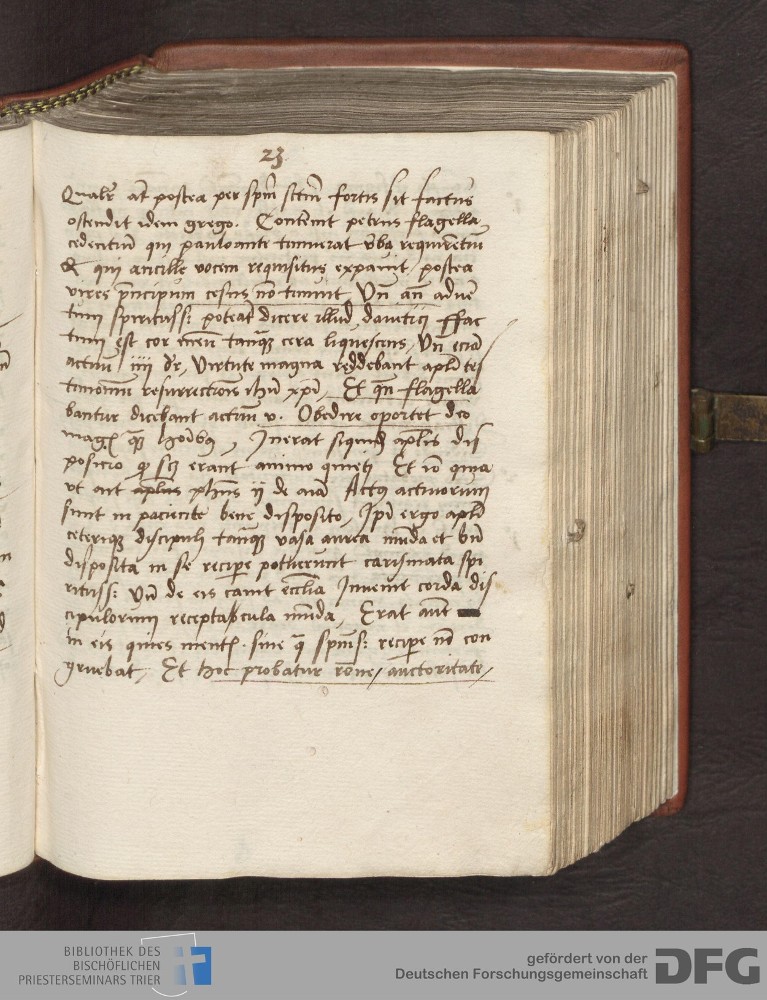 23
Qualr at postea per spm sctm fortis sit factus
ostendit idem grego. Contemt petrus flagella
cedentiu qui paulo ante timuerat vba requirentiu
& qui ancille vocem requisitus expavit / postea
vires pncipum cesus no timuit Vn an adue
tum spiritus s: poteat dicere illud dauitici ffac
tum est cor meu tanq cera liquescens, Vn ecia
actuu iiii dr, Virtute magna reddebant apli tes
timoniu resurrectiois ihu xpi, Et qn flagella
bantur dicebant actuu v. Obedire oportet deo
mag q hoibq, Inerat siquid aplis dis
posicio q sc erant animo quieti Et io quia
vt ait phus ij de aia Actq actiuorum
sunt in paciente bene disposito, Ipi ergo apli
ceteriq discipuli tanq vasa aurea munda et bn
disposita in se recipe potuerunt carismata spi
ritus s: Vn de eis canit ecclia Inuenit corda dis
cipulorum receptacula munda, Erat aut
in eis quies mentis. sine q spm s: recipe no con
gruebat, Et hoc probatur rone / auctoritate /
BIBLIOTHEK DES
BISCHÖFLICHEN
PRIESTERSEMINARS TRIER
gefördert von der
Deutschen Forschungsgemeinschaft
DFG